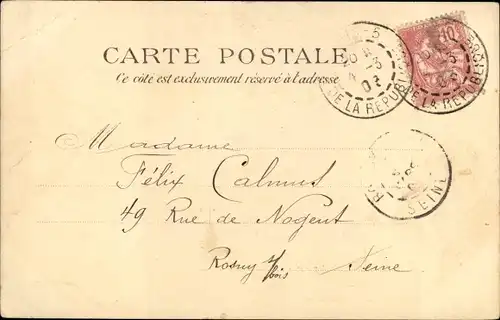 CARTE POSTALE
Ce côté est exclusivement réservé à l'adresse
10
DE LA REPUBL
DE LA REPUBL
4 3
02
SEINE
Madame
Félix Calmus
49 Rue de Nogent
Rosny s/bois Seine